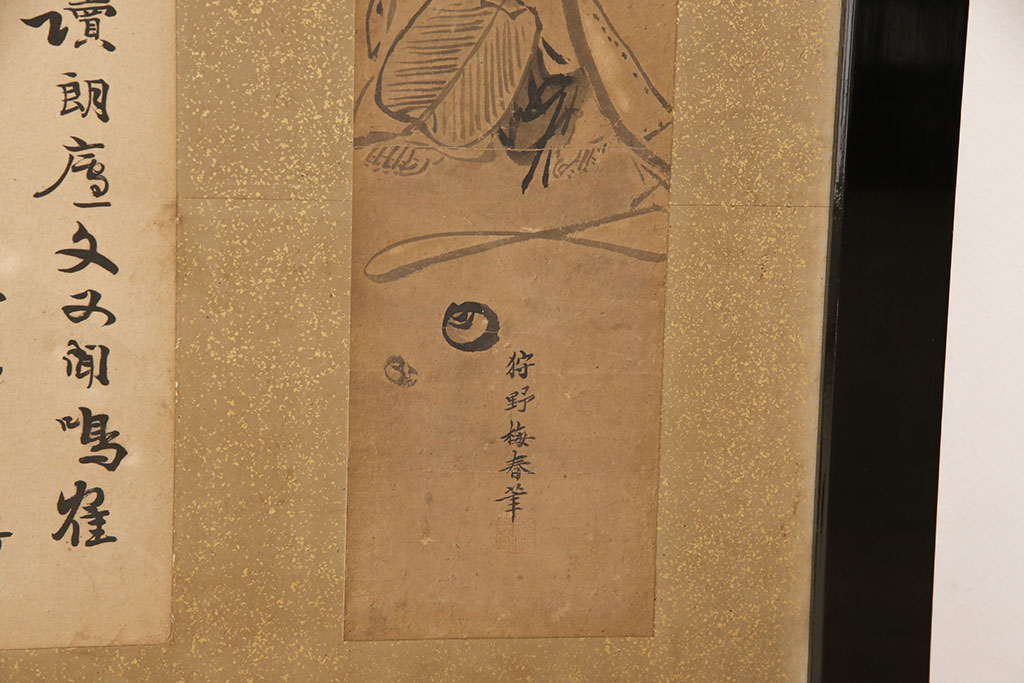 狩野梅春筆
讀朗廬文又聞鳴隺